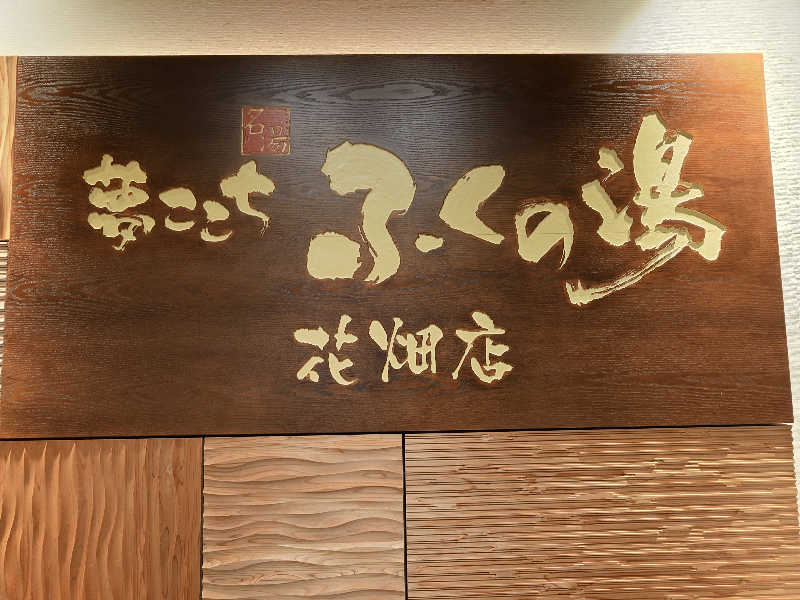 名湯
夢ごこち ふくの湯
花畑店